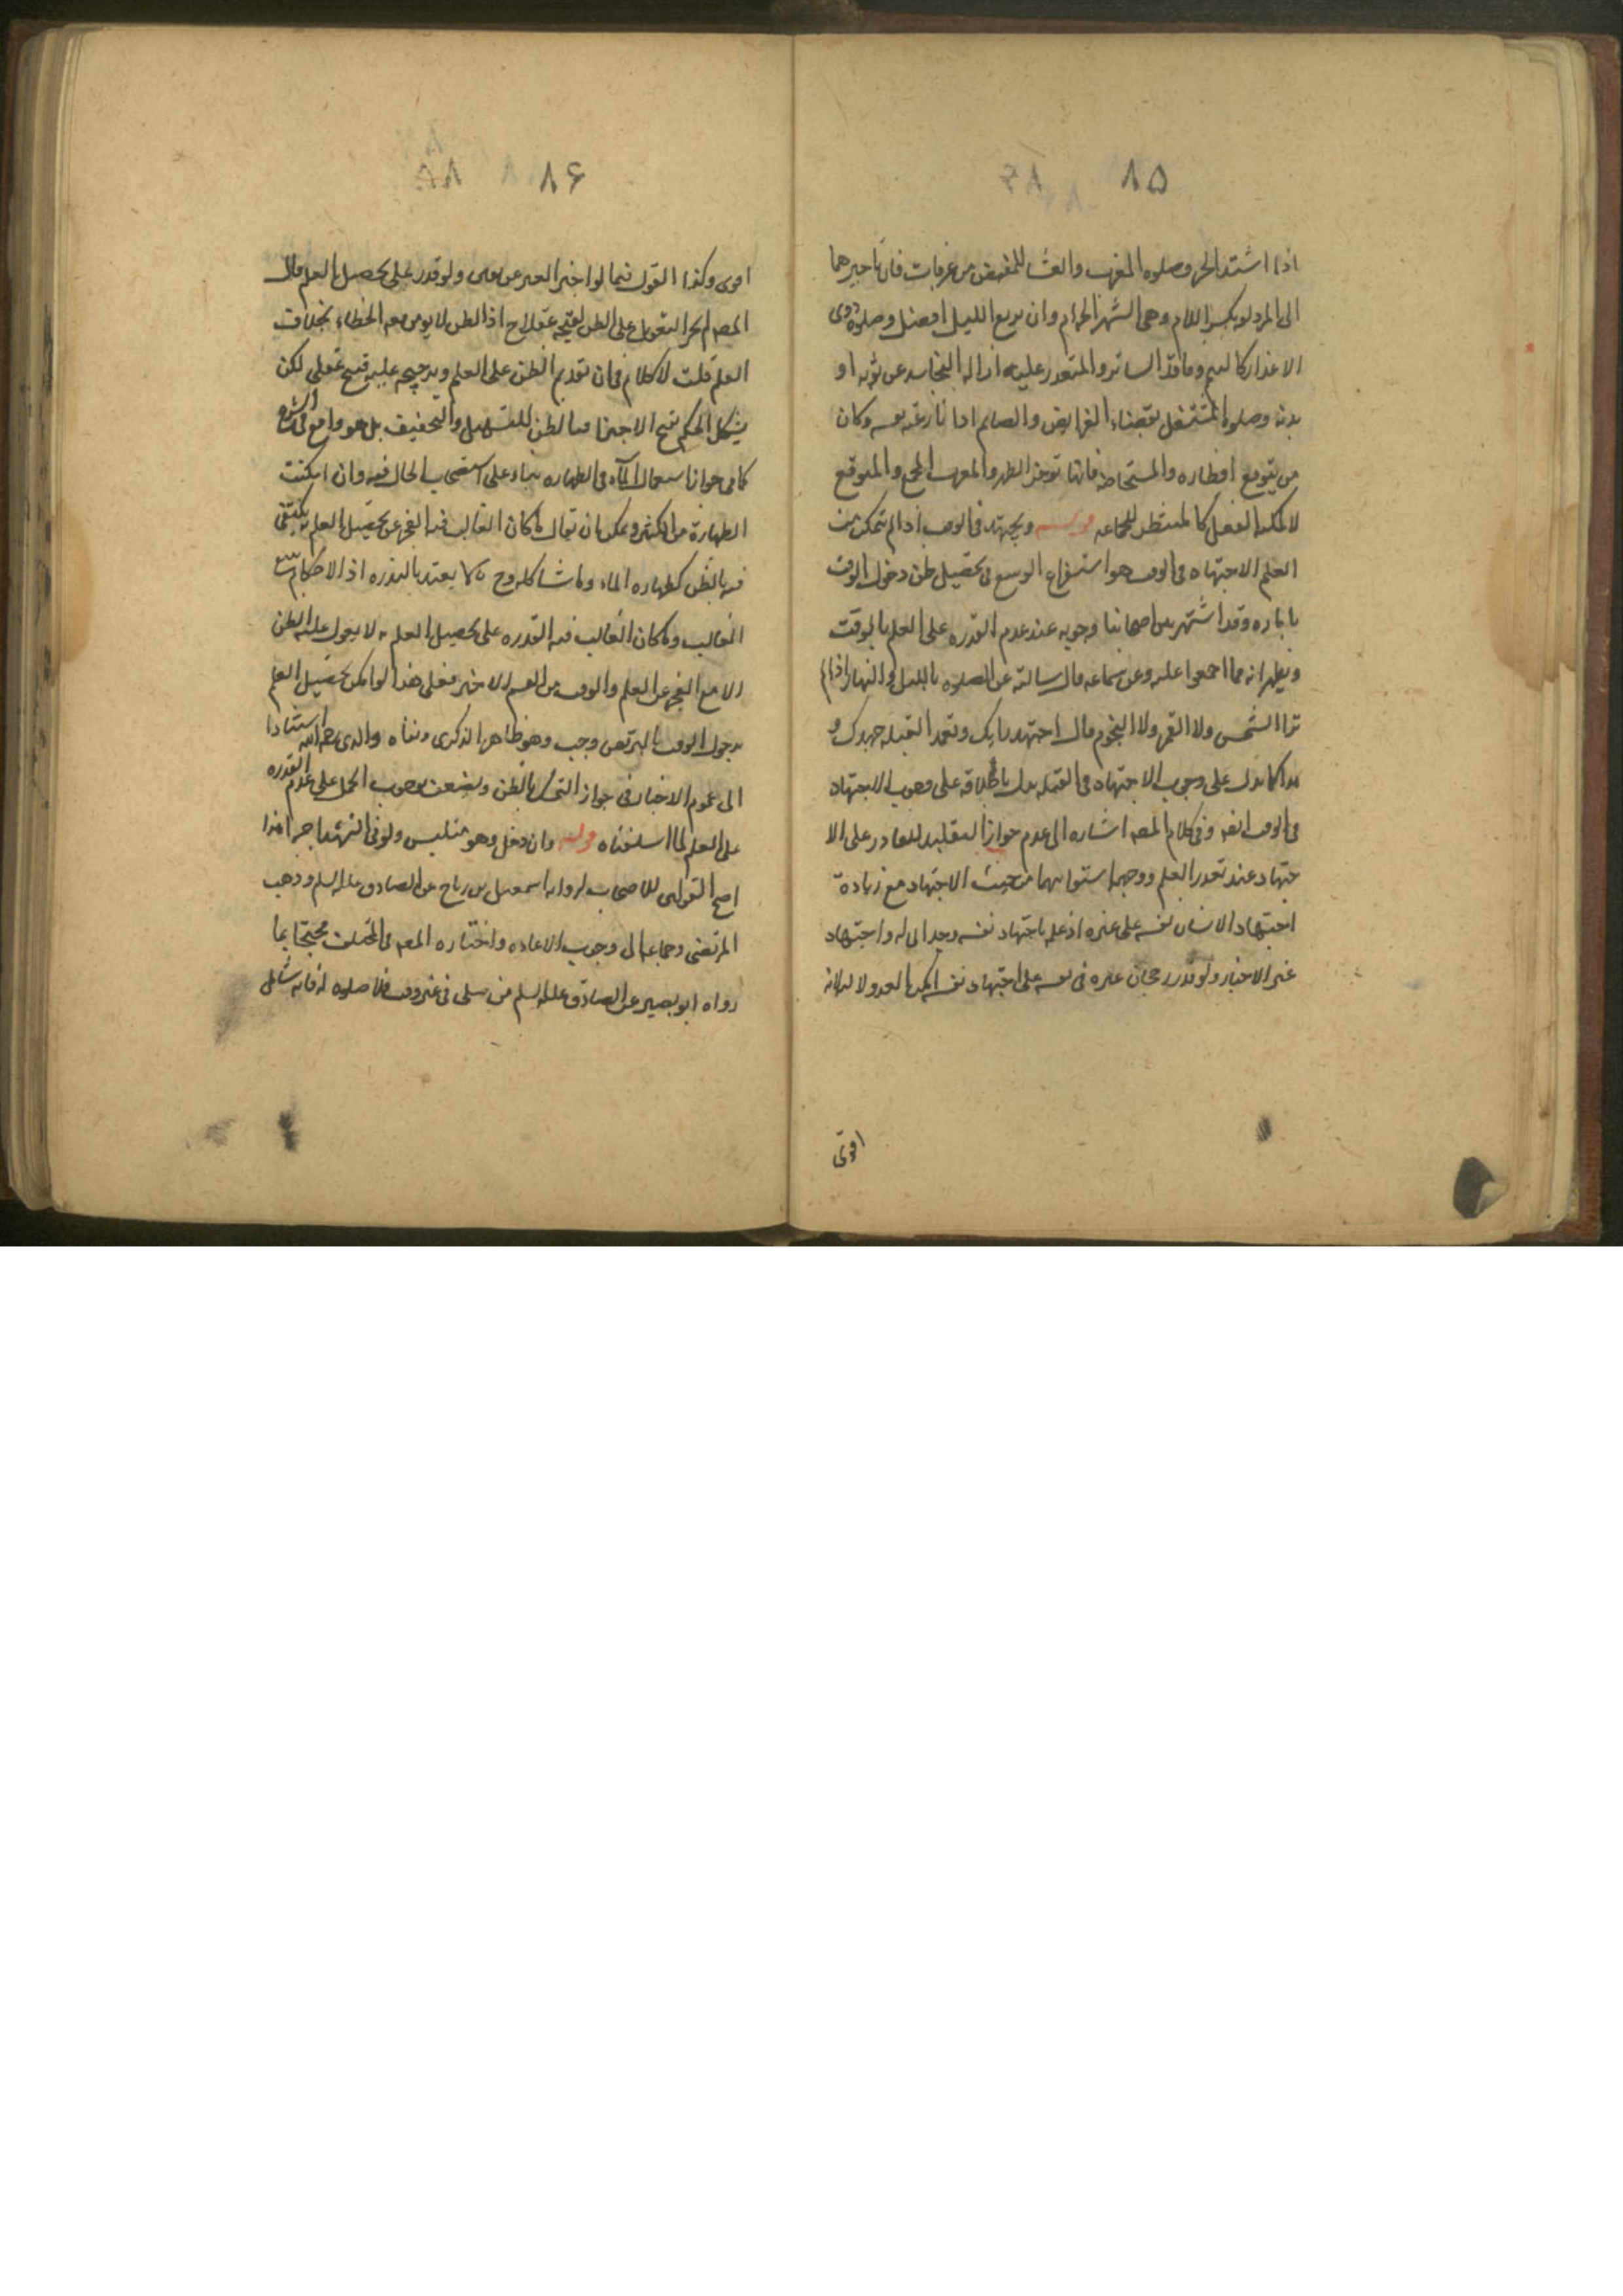 ٨٥
اذا اشتد الحر وصلوه المغرب والعشا للمفيض من عرفات فان تاخيرهما
الى المزدلفه بكسر اللام وهى المشعر الحرام وان تربع الليل افضل وصلوة ذوى
الاعذار كالتيمم وفاقد الساتر والمتعذر عليه ازاله النجاسه عن ثوبه او
بدنه وصلوة المشتغل بقضاء الفرايض والصايم اذا نازعته نفسه وكان
من يتوقع افطاره والمستحاضه فانها توخر الظهر والمغرب للجمع والمتوقع
الفضل كالمنتظر للجماعه قوله ويجتهد فى الوقت اذا لم يتمكن من
العلم الاجتهاد فى الوقت هو استفراغ الوسع فى تحصيل ظن دخول الوقت
باماره وقد اشتهر بين اصحابنا وجوبه عند عدم القدره على العلم بالوقت
ويظهر انه مما اجمعوا عليه وعن سماعه قال سالته عن الصلوه بالليل والنهار اذا لم
تر الشمس ولا القمر ولا النجوم قال اجتهد رايك وتعمد القبله جهدك و
هذا كما يدل على وجوب الاجتهاد فى القبله يدل باطلاقه على وجوب الاجتهاد
فى الوقت ايضا وفى كلام المصه اشاره الى عدم جواز التقليد للقادر على الا
جتهاد عند تعذر العلم ووجهه استوايهما من حيث الاجتهاد مع زيادة
اجتهاد الانسان لنفسه على غيره اذ علمه باجتهاد نفسه وجدانى له واجتهاد
غيره لاخبار ولو قدر رجحان غيره فى نفسه على اجتهاد نفسه امكن العدول لانه
اقوى
٨۶
اقوى وكذا القول فيما لو اخبر الغير عن يقين ولو قدر على تحصيل العلم قال
المصه لم يجز التعويل على الظن لقبحه عقلا ح اذ الظن لا يومن معه الخطاء بخلاف
العلم قلت لا كلام فى ان تقديم الظن على العلم وترجيحه عليه قبيح عقلى لكن
يشكل الحكم بقبح الاجتزا بالظن للتسهيل والتخفيف بل هو واقع فى الشرع
كما فى جواز استعمال الماء فى الطهاره بناء على استصحاب الحال فيه وان امكنت
الطهارة من الكثير ويمكن ان يقال ما كان الغالب فيه العجز عن تحصيل العلم به يكتفى
فيه بالظن كطهاره الماء وما شاكله وح لا يعتد بالندره اذ الاحكام تتبع
الغالب وما كان الغالب فيه القدره على تحصيل العلم به لا يعول عليه بالظن
الا مع العجز عن العلم والوقت من القسم الاخير فعلى هذا لو امكن تحصيل العلم
بدخول الوقت بالتربص وجب وهو ظاهر الذكرى ونفاه والدى رحمه الله استنادا
الى عموم الاخبار فى جواز التمسك بالظن ويضعف بوجوب الحمل على عدم القدره
على العلم لما اسلفناه قوله وان دخل وهو متلبس ولو فى التشهد اجزا هذا
اصح القولين للاصحاب لروايه اسمعيل بن رياح عن الصادق عليه السلم وذهب
المرتضى وجماعه الى وجوب الاعاده واختاره المصه فى المختلف محتجا بما
رواه ابو بصير عن الصادق عليه السلم من صلى فى غير وقت فلا صلوه له فانه شامل